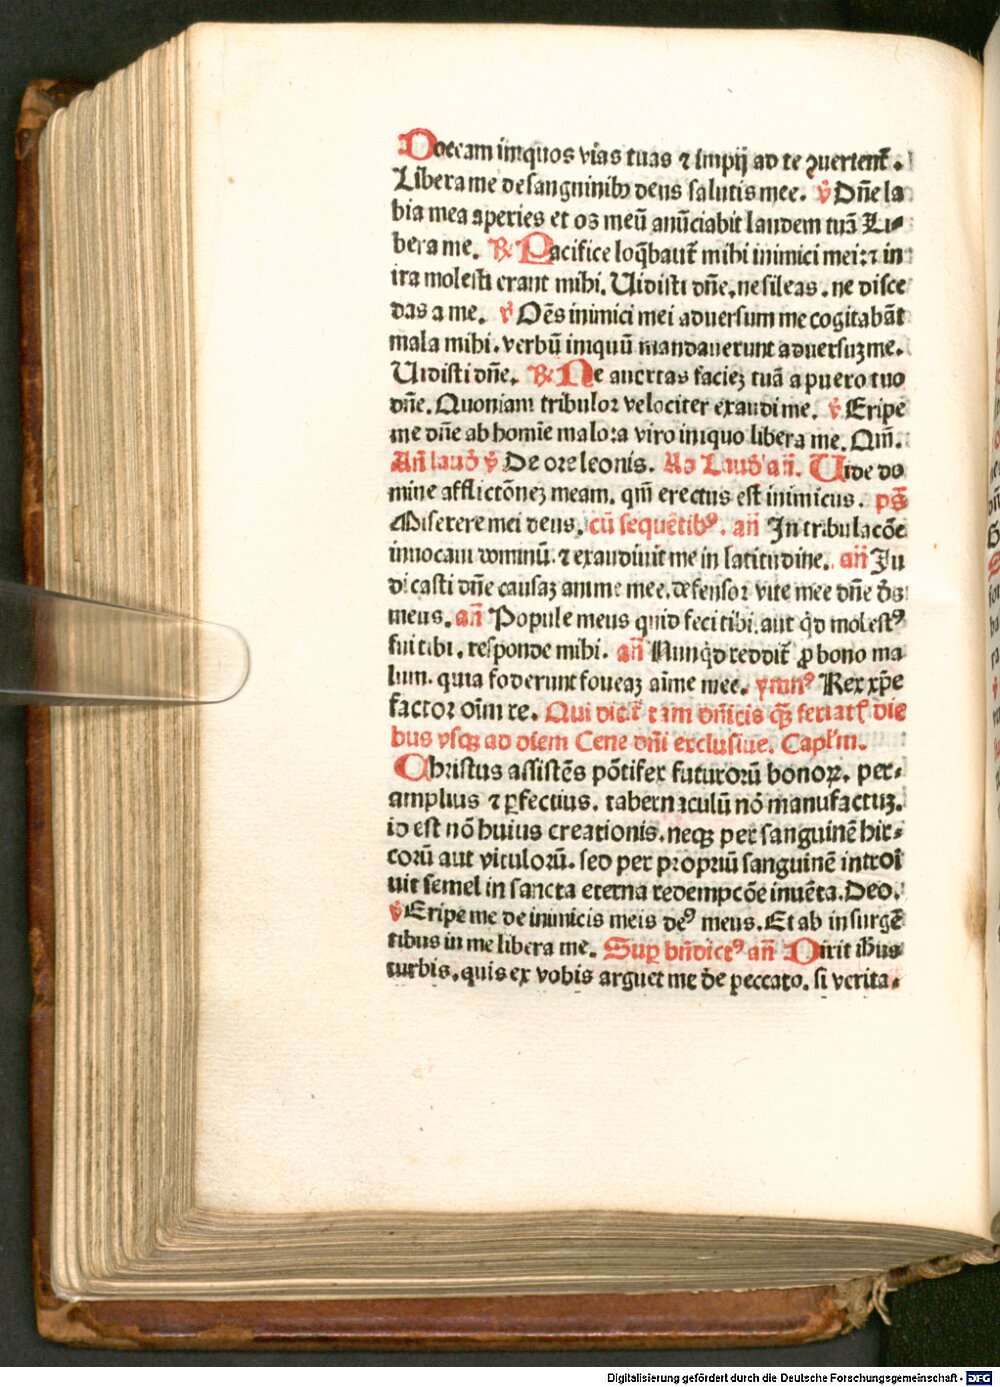 Doceam iniquos vias tuas ⁊ impij ad te ꝯuertent̄.
Libera me de sanguinibꝰ deus salutis mee. ℣ Dn̄e la
bia mea aperies et os meū anūciabit laudem tuā Li⸗
bera me. ℟ Pacifice loq̄baut̄ mihi inimici mei:⁊ in
ira molesti erant mihi. Uidisti dn̄e, ne sileas. ne disce
das a me. ℣ Oēs inimici mei aduersum me cogitabāt
mala mihi. verbū iniquū mandauerunt aduersuꝫ me.
Uidisti dn̄e. ℟ Ne auertas facieꝫ tuā a puero tuo
dn̄e. Quoniam tribulor velociter exaudi me. ℣ Eripe
me dn̄e ab homīe malo:a viro iniquo libera me. Qm̄.
An̄ laud̕ ℣ De ore leonis. Ad Laud̕ an̄. Uide do
mine afflictōneꝫ meam. qm̄ erectus est inimicus. ps̄
Miserere mei deus. cū sequētibꝰ. an̄ In tribulacōe
inuocaui dominū. ⁊ exaudiuit me in latitudine. an̄ Iu
dicasti dn̄e causaꝫ anime mee. defensor vite mee dn̄e de͛s
meus. an̄ Popule meus quid feci tibi. aut qd̕ molestꝰ
fui tibi. responde mihi. an̄ Nunqd̕ reddit̄ ꝓ bono ma
lum. quia foderunt foueaꝫ aīme mee. ymnꝰ Rex xp̄e
factor oīm re. Qui dicit̄ tam dn̄icis qꝫ feriatꝭ die
bus vsqꝫ ad diem Cene dn̄i exclusiue. Capl̄m.
Christus assistēs pōtifex futurorū bonoꝝ. per⸗
amplius ⁊ ꝑfectius. tabernaculū nō manufactuꝫ.
id est nō huius creationis. neqꝫ per sanguinē hir⸗
corū aut vitulorū. sed per propriū sanguinē introi
uit semel in sancta eterna redempcōe inuēta. Deo.
℣ Eripe me de inimicis meis deꝰ meus. Et ab insurgē
tibus in me libera me. Suꝑ bn̄dictꝰ an̄ Dixit ihūs
turbis. quis ex vobis arguet me de peccato. si verita⸗
Digitalisierung gefördert durch die Deutsche Forschungsgemeinschaft - DFG